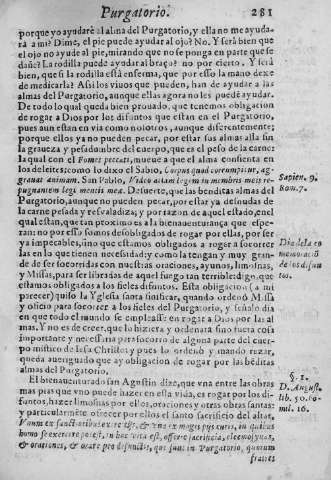 Purgatorio. 281
porque yo ayudarè al alma del Purgatorio, y ella no me ayuda-
rà a mi? Dime, el pie puede ayudar al ojo? No. Y serà bien que
el ojo no ayude al pie, mirando que no se ponga en parte que se
dañe? La rodilla puede ayudar al braço? no por cierto. Y serà
bien, que si la rodilla està enferma, que por esso la mano dexe
de medicarla? Assi los viuos que pueden, han de ayudar a las
almas del Purgatorio, aunque ellas agora no les puedē ayudar.
De todo lo qual queda bien prouado, que tenemos obligacion
de rogar a Dios por los difuntos que estan en el Purgatorio,
pues aun estan en via como nosotros, aunque diferentemente;
porque ellos ya no pueden pecar, por estar sus almas alla sin
la grueza y pesadumbre del cuerpo, que es el peso de la carne:
la qual con el Fomes peccati, mueue a que el alma consienta en
los deleites: como lo dixo el Sabio, Corpus quod corrumpitur, ag-
grauat animam. San Pablo, Video aliam legem in membris meis re-
pugnantem legi mentis meæ. De suerte, que las benditas almas del
Purgatorio, aunque no pueden pecar, por estar ya desnudas de
la carne pesada y resvaladiza; y por razon de aquel estado, en el
qual estan, que tan proximo es a la bienauenturança que espe-
ran: no por esso somos desobligados de rogar por ellas, por ser
ya impecables, sino que estamos obligados a rogar a socorrer
las en lo que tienen necessidad; y como la tengan y muy gran-
de de ser socorridas con nuestras oraciones, ayunos, limosnas,
y Missas, para ser libradas de aquel fuego tan terrible: digo, que
estamos obligados a los fieles difuntos. Esta obligacion (a mi
parecer) quiso la Yglesia santa sinificar, quando ordenò Missa
y oficio para socorrer a los fieles del Purgatorio, y señalò dia
en que todo el mundo se empleasse en rogar a Dios por las al-
mas. Y no es de creer, que lo hiziera y ordenara sino fuera cosa
importante y necessaria para socorro de alguna parte del cuer-
po mistico de Iesu Christo: y pues lo ordenò y mandò rezar,
queda aueriguado que ay obligacion de rogar por las bēditas
almas del Purgatorio.
El bienauenturado san Agustin dize, que vna entre las obras
mas pias que vno puede hazer en esta vida, es rogar por los di-
funtos, hazer limosnas por ellos, oraciones y otras obras santas:
y particularmēte ofrecer por ellos el santo sacrificio del altar.
homo se exercere potest, in hoc vita est, offerre sacrificia, eleemosynas,
& orationes, & orare pro defunctis, qui sunt in Purgatorio, quorum
Sapien. 9.
Rom. 7.
Dia de la co
memoracion
de los difun
tos.
§. 2.
D. August.
lib. 50. ho-
mil. 16.